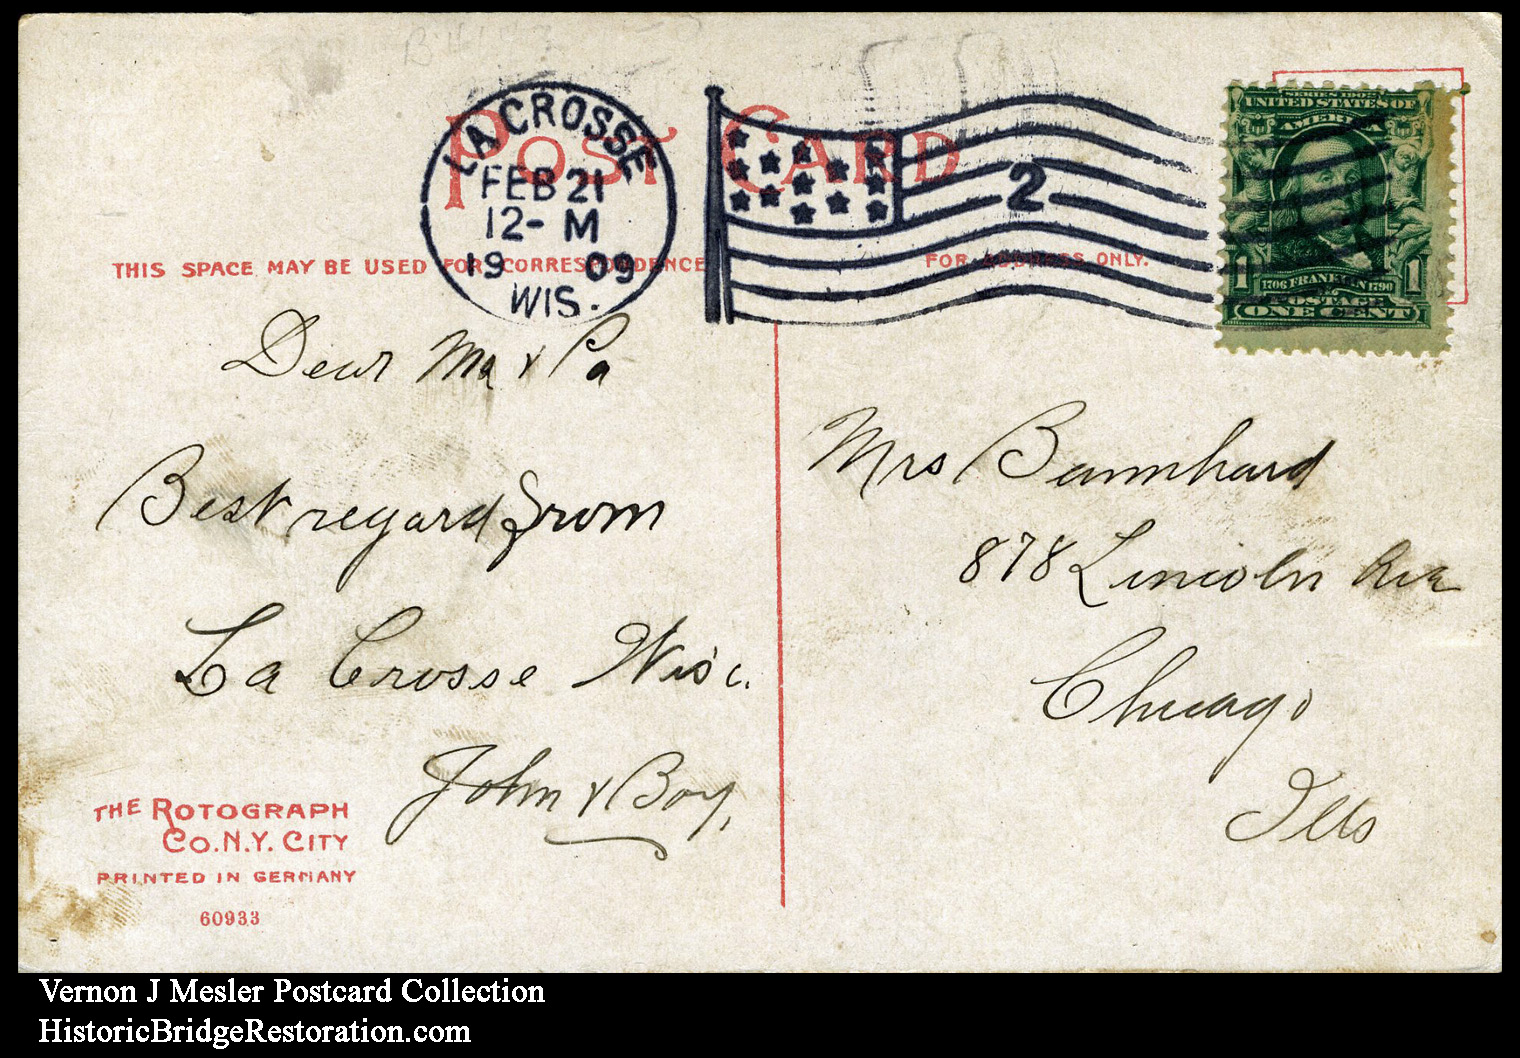 POST CARD
LA CROSSE
FEB 21
12- M
1909
WIS.
2
SERIES 1902
UNITED STATES OF
AMERICA
1706 FRANKLIN 1790
1 POSTAGE 1
ONE CENT
THIS SPACE MAY BE USED FOR CORRESPONDENCE
FOR ADDRESS ONLY.
Dear Ma & Pa
Best regard from
La Crosse Wisc.
John & Boy,
Mrs
878 Lincoln Ave
Chicago
Ills
THE ROTOGRAPH
CO. N.Y. CITY
PRINTED IN GERMANY
60933
Vernon J Mesler Postcard Collection
HistoricBridgeRestoration.com